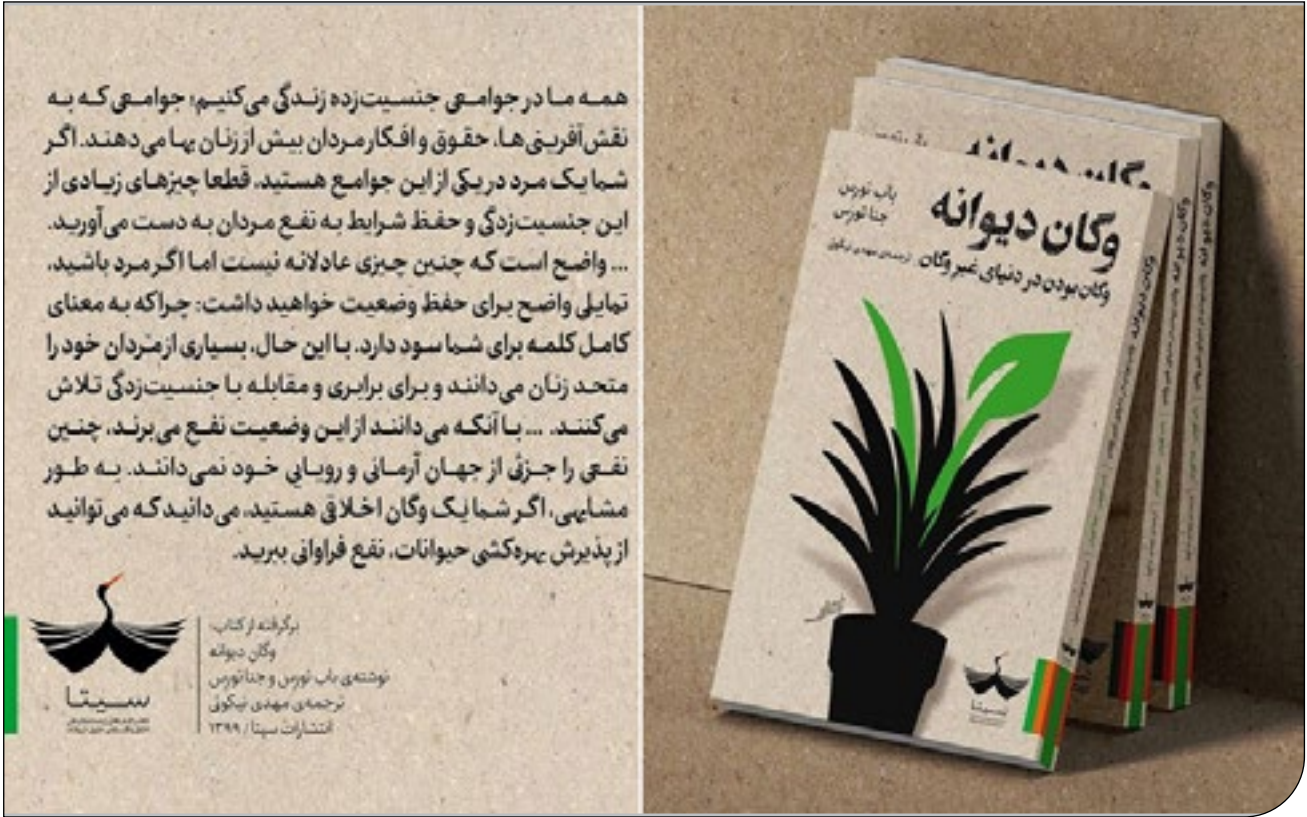 همه ما در جوامعی جنسیت‌زده زندگی می‌کنیم؛ جوامعی که به
نقش‌آفرینی‌ها، حقوق و افکار مردان بیش از زنان بها می‌دهند. اگر
شما یک مرد در یکی از این جوامع هستید، قطعا چیزهای زیادی از
این جنسیت‌زدگی و حفظ شرایط به نفع مردان به دست می‌آورید.
... واضح است که چنین چیزی عادلانه نیست اما اگر مرد باشید،
تمایلی واضح برای حفظ وضعیت خواهید داشت: چراکه به معنای
کامل کلمه برای شما سود دارد. با این حال، بسیاری از مردان خود را
متحد زنان می‌دانند و برای برابری و مقابله با جنسیت‌زدگی تلاش
می‌کنند. ... با آنکه می‌دانند از این وضعیت نفع می‌برند، چنین
نفعی را جزئی از جهان آرمانی و رویایی خود نمی‌دانند. به طور
مشابهی، اگر شما یک وگان اخلاقی هستید، می‌دانید که می‌توانید
از پذیرش بهره‌کشی حیوانات، نفع فراوانی ببرید.
برگرفته از کتاب:
وگان دیوانه
نوشته‌ی باب تورس و جنا تورس
ترجمه‌ی مهدی نیکوئی
انتشارات سیتا / ۱۳۹۹
سیتا
باب تورس
جنا تورس
وگان دیوانه
وگان بودن در دنیای غیر وگان
ترجمه‌ی مهدی نیکوئی
سیتا
وگان دیوانه
وگان دیوانه
وگان دیوانه
وگان دیوانه